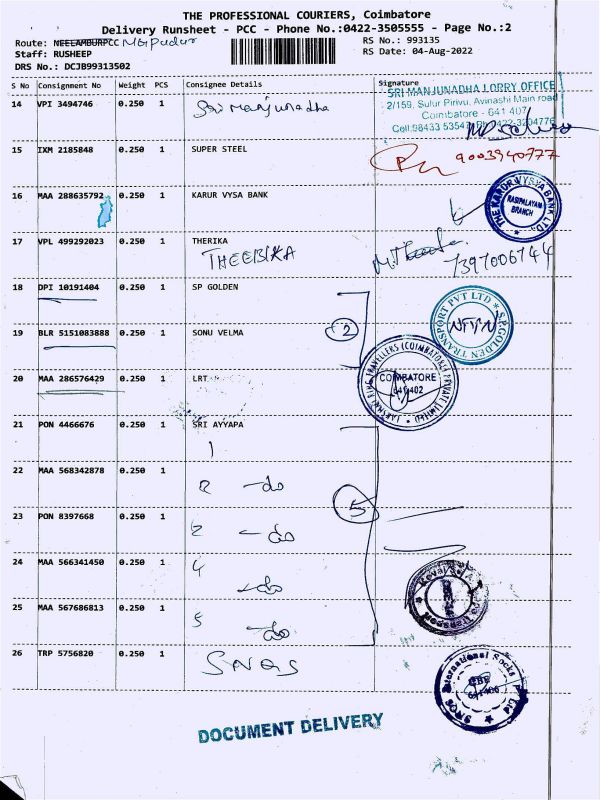 THE PROFESSIONAL COURIERS, Coimbatore
Delivery Runsheet - PCC - Phone No.:0422-3505555 - Page No.:2
Route: NEELAMBURPCC M G pudur
RS No.: 993135
Staff: RUSHEEP
RS Date: 04-Aug-2022
DRS No.: DCJB99313502
S No Consignment No Weight PCS Consignee Details Signature
14 VPI 3494746 0.250 1 Sri Manjunadha
SRI MANJUNADHA LORRY OFFICE
2/159, Sulur Pirivu, Avinashi Main road
Coimbatore - 641 407
15 IXM 2185848 0.250 1 SUPER STEEL 9003940777
16 MAA 288635792 0.250 1 KARUR VYSA BANK
THE KARUR VYSYA BANK LTD.
RASIPALAYAM
BRANCH
17 VPL 499292023 0.250 1 THERIKA
THEEBIKA
7397006744
18 DPI 10191404 0.250 1 SP GOLDEN
S.P.GOLDEN TRANSPORT PVT LTD
19 BLR 5151083888 0.250 1 SONU VELMA 2
20 MAA 286576429 0.250 1 LRT
TRAVELLERS (COIMBATORE) PRIVATE LIMITED
COIMBATORE
641 402
21 PON 4466676 0.250 1 SRI AYYAPA
1
22 MAA 568342878 0.250 1 2 -do
5
23 PON 8397668 0.250 1 -do
24 MAA 566341450 0.250 1 4 -do
25 MAA 567686813 0.250 1 5 -do
26 TRP 5756820 0.250 1 SNQS
SNQS International Socks Pvt Ltd
DOCUMENT DELIVERY